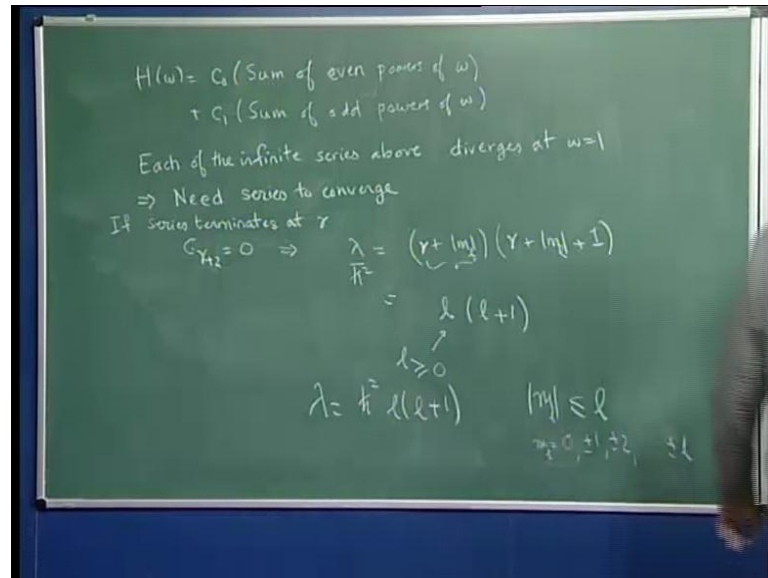 H(ω) = C₀ (Sum of even powers of ω)
+ C₁ (Sum of odd powers of ω)
Each of the infinite series above diverges at ω=1
⇒ Need series to converge
If series terminates at r
C_{r+2} = 0 ⇒ λ/ℏ² = (r + |m_l|) (r + |m_l| + 1)
= l (l+1)
l ≥ 0
λ = ℏ² l(l+1) |m_l| ≤ l
m_l = 0, ±1, ±2, ±l